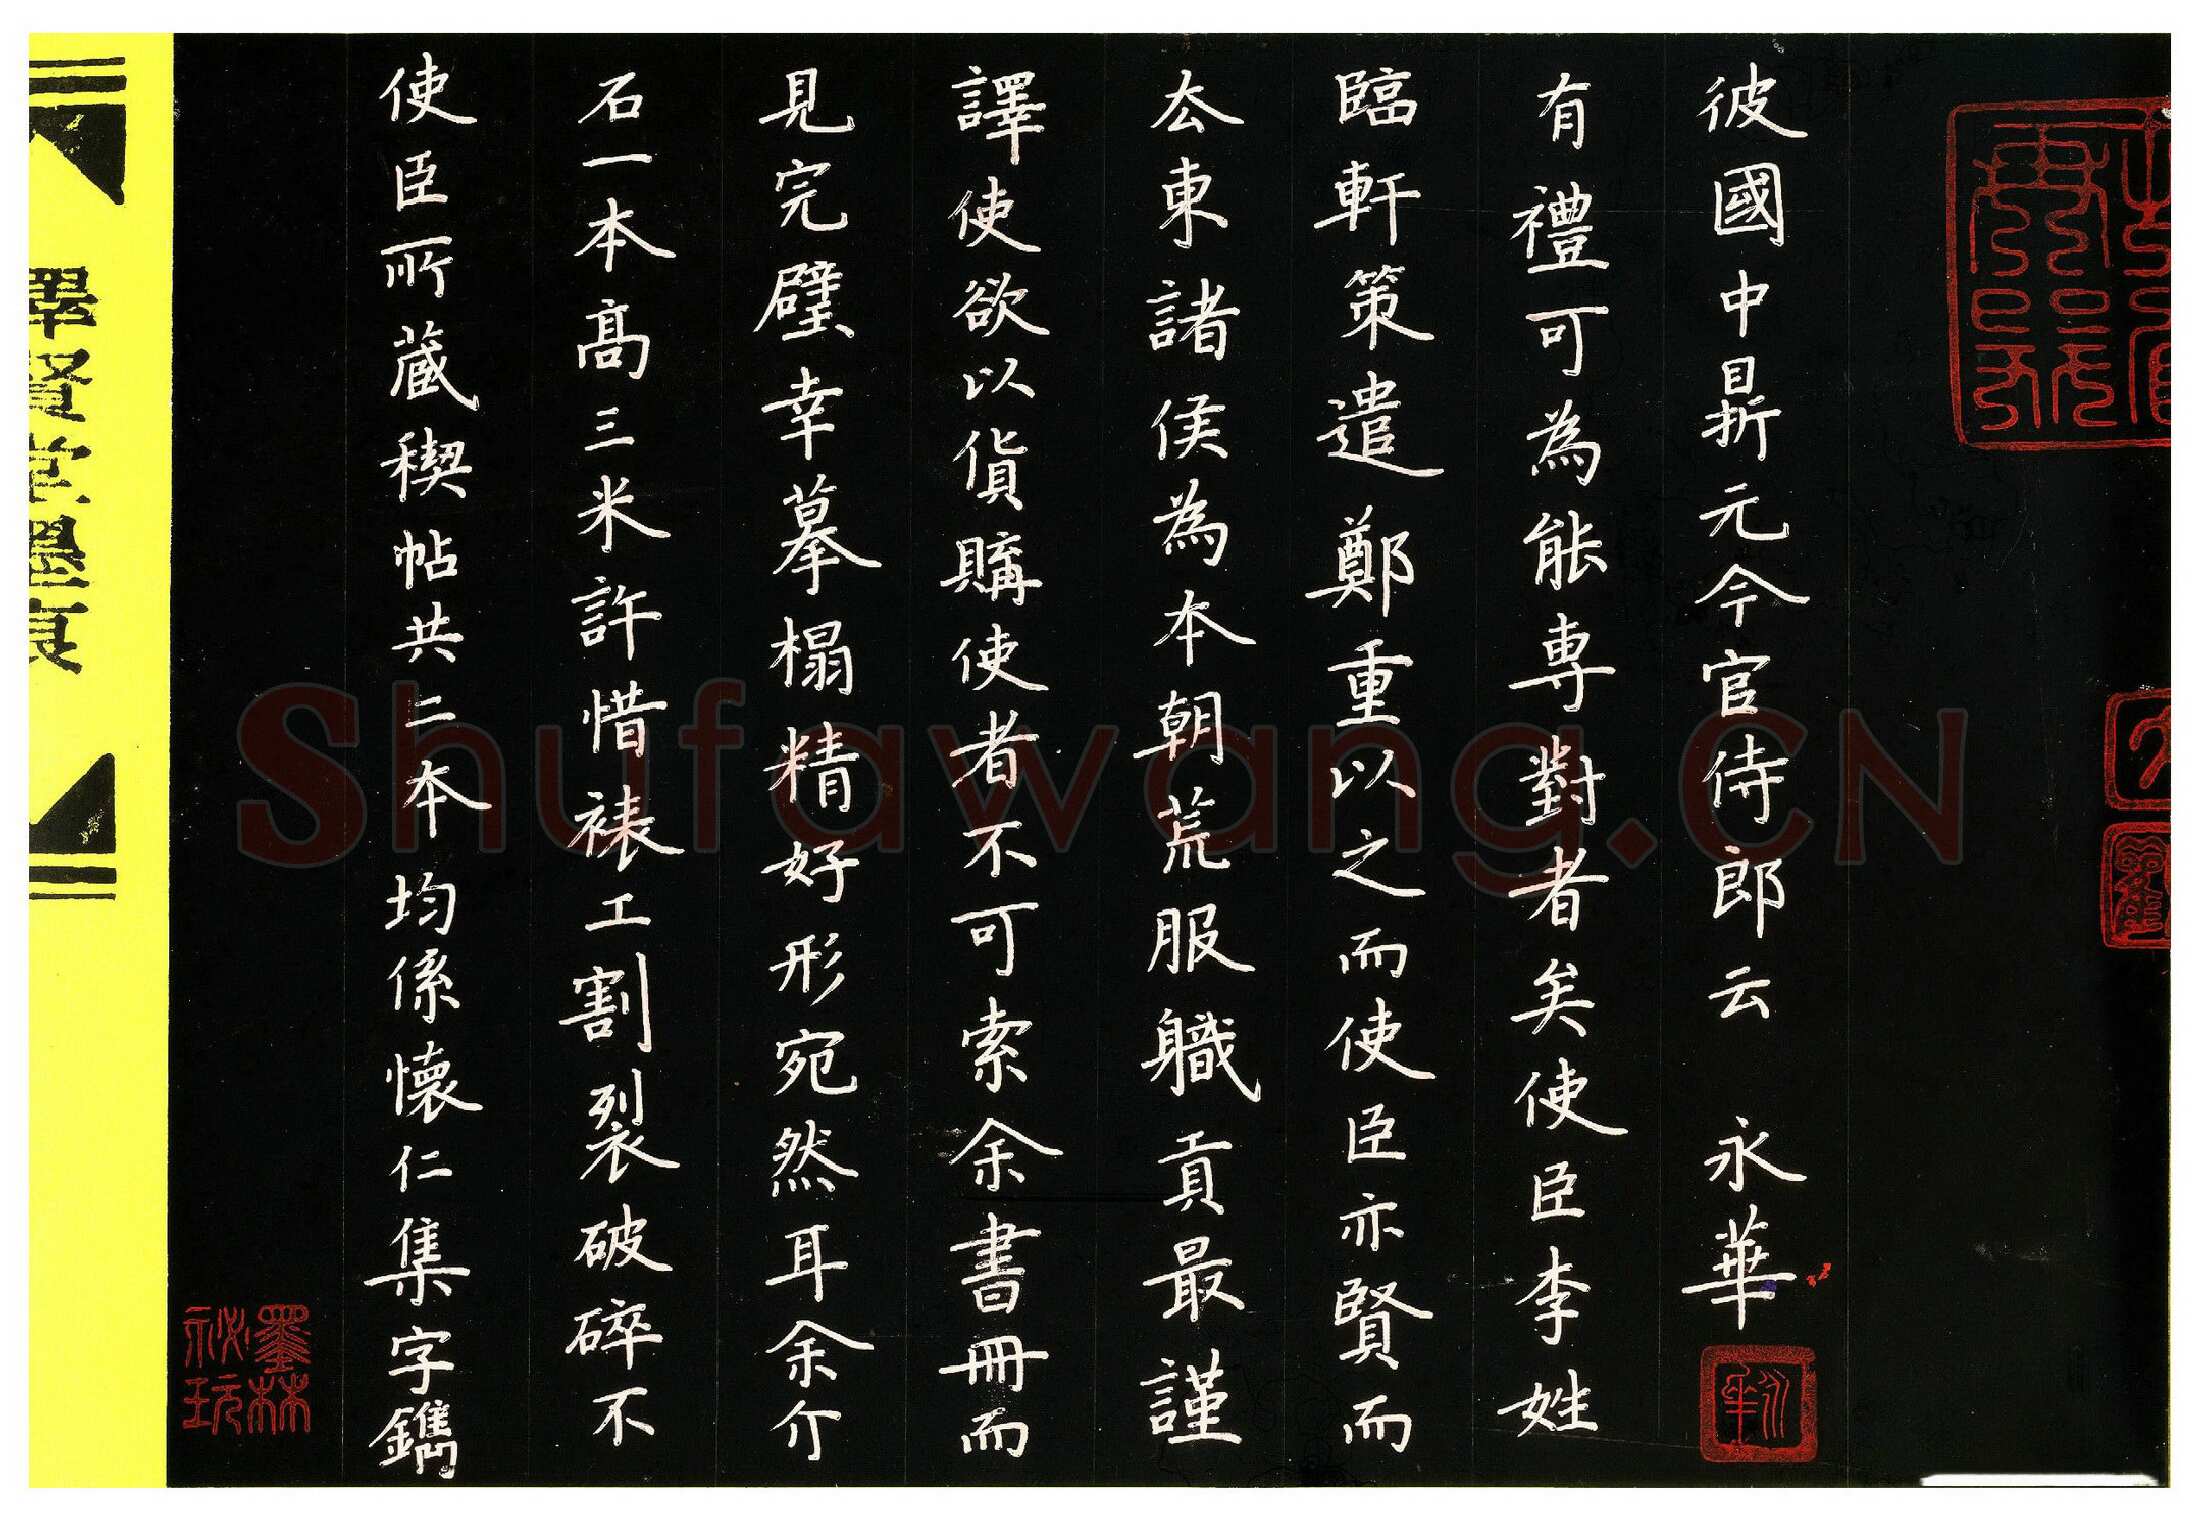 彼國中最折元今官侍郎云 永華
有禮可為能専對者矣使臣李姓
臨軒策遣鄭重以之而使臣亦賢而
厺東諸侯為本朝荒服軄貢最謹
譯使欲以貨購使者不可索余書冊而
見完璧幸摹榻精好形宛然耳余行
石一本高三米許惜裱工割裂破碎不
使臣所藏稧帖共二本均係懷仁集字鐫
墨林
祕玩
賢堂墨
Shufawang.CN